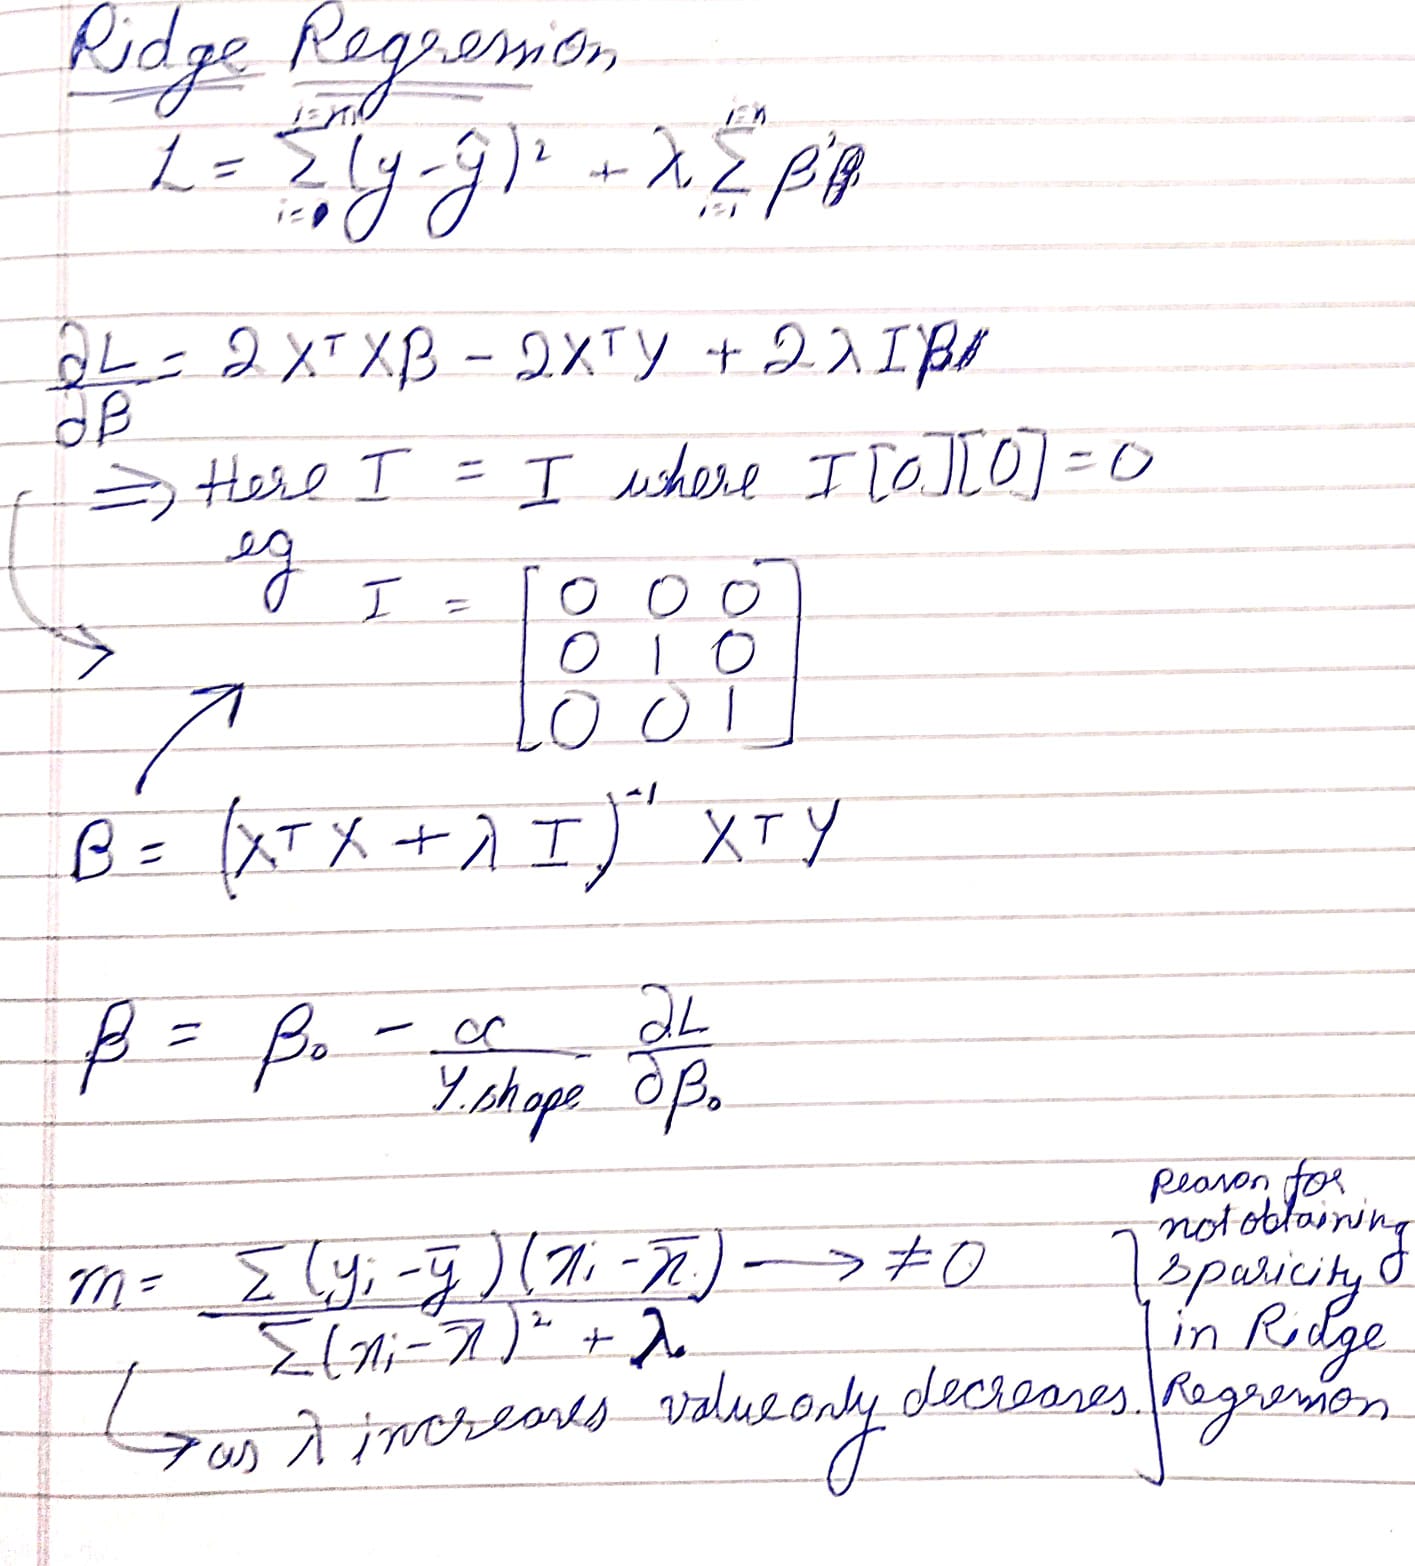 Ridge Regression
L = Σ_{i=0}^{i=m} (y - ŷ)² + λ Σ_{i=1}^{i=n} β²
∂L/∂β = 2XᵀXβ - 2XᵀY + 2λIβ
⇒ Here I = I where I[0][0] = 0
eg
I = [0 0 0
0 1 0
0 0 1]
β = (XᵀX + λI)⁻¹ XᵀY
β = β₀ - α/Y.shape ∂L/∂β₀
m = Σ(yᵢ - ȳ)(xᵢ - x̄) / Σ(xᵢ - x̄)² + λ → ≠ 0
↳ as λ increases value only decreases.
Reason for
not obtaining
sparicity
in Ridge
Regression